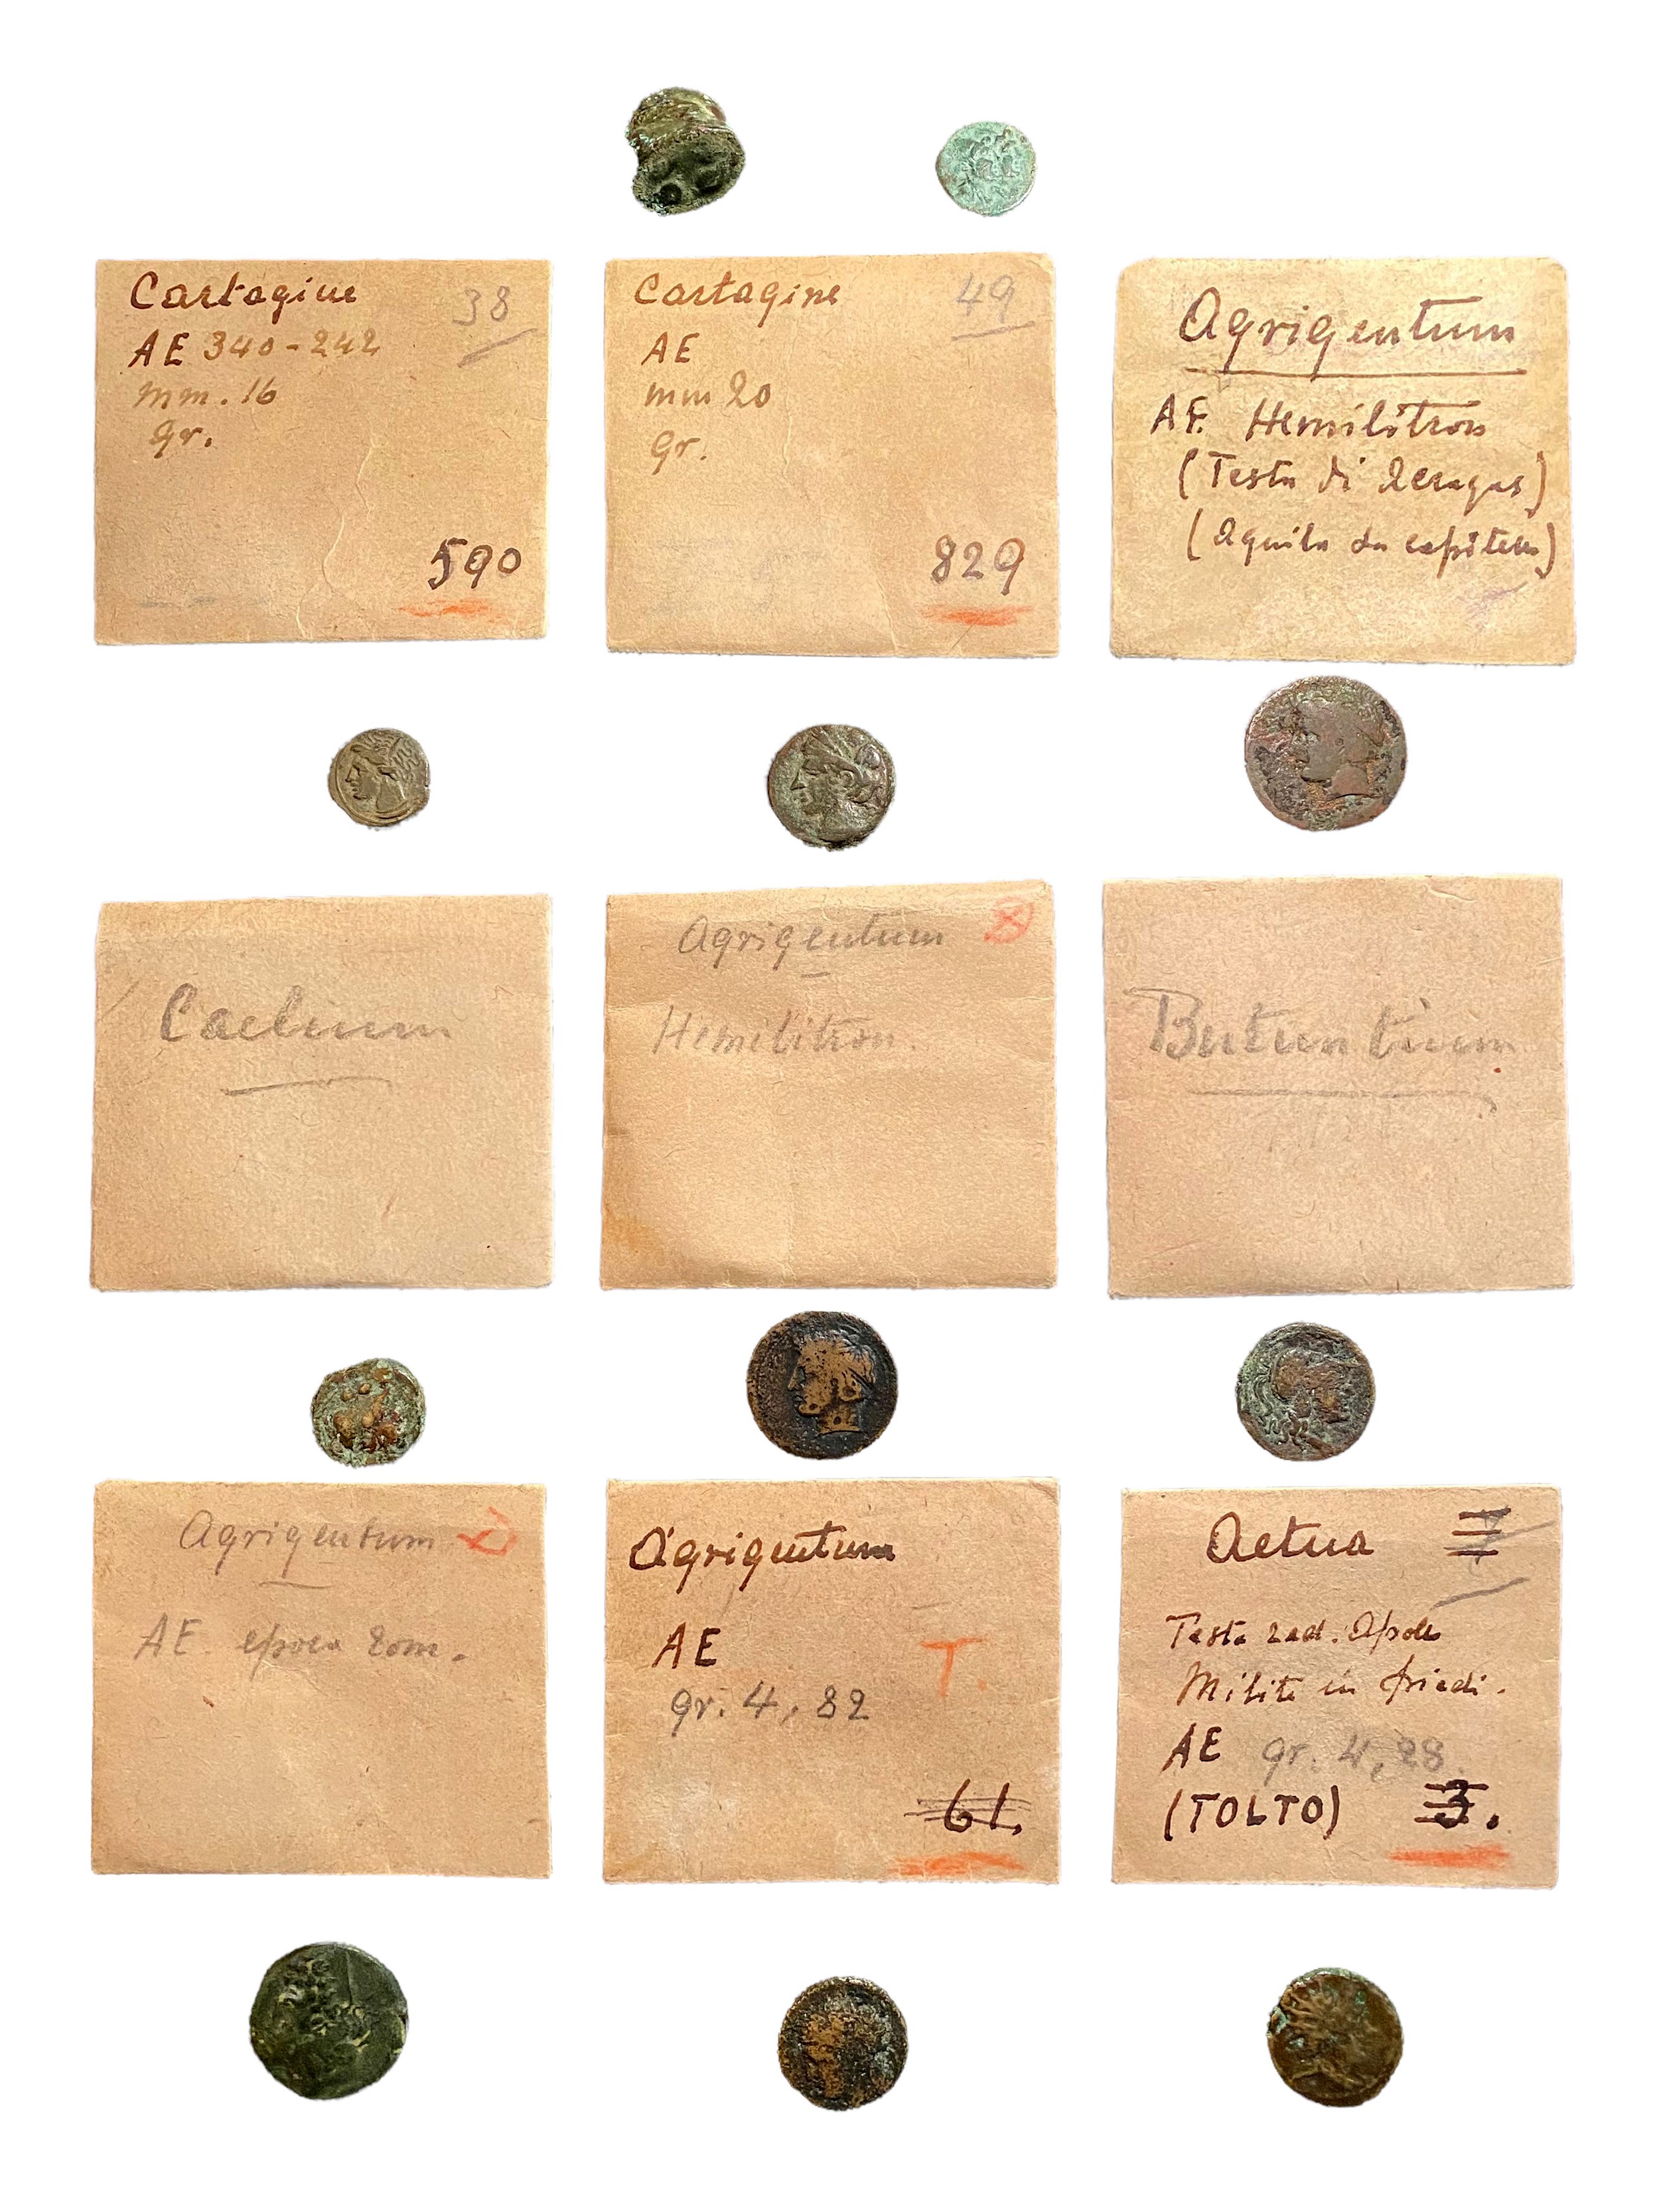 Cartagine 38
AE 340-242
mm. 16
gr.
590
Cartagine 49
AE
mm 20
gr.
829
Agrigentum
AE. Hemilitron
(Testa di Acragas)
(Aquila su capitello)
Caelium
Agrigentum
Hemilitron.
Butuntium
Agrigentum
AE epoca Rom.
Agrigentum
AE
T.
gr. 4,82
61.
Aetna
Testa rad. Apollo
Milite in piedi.
AE gr. 4,28.
(TOLTO) 3.